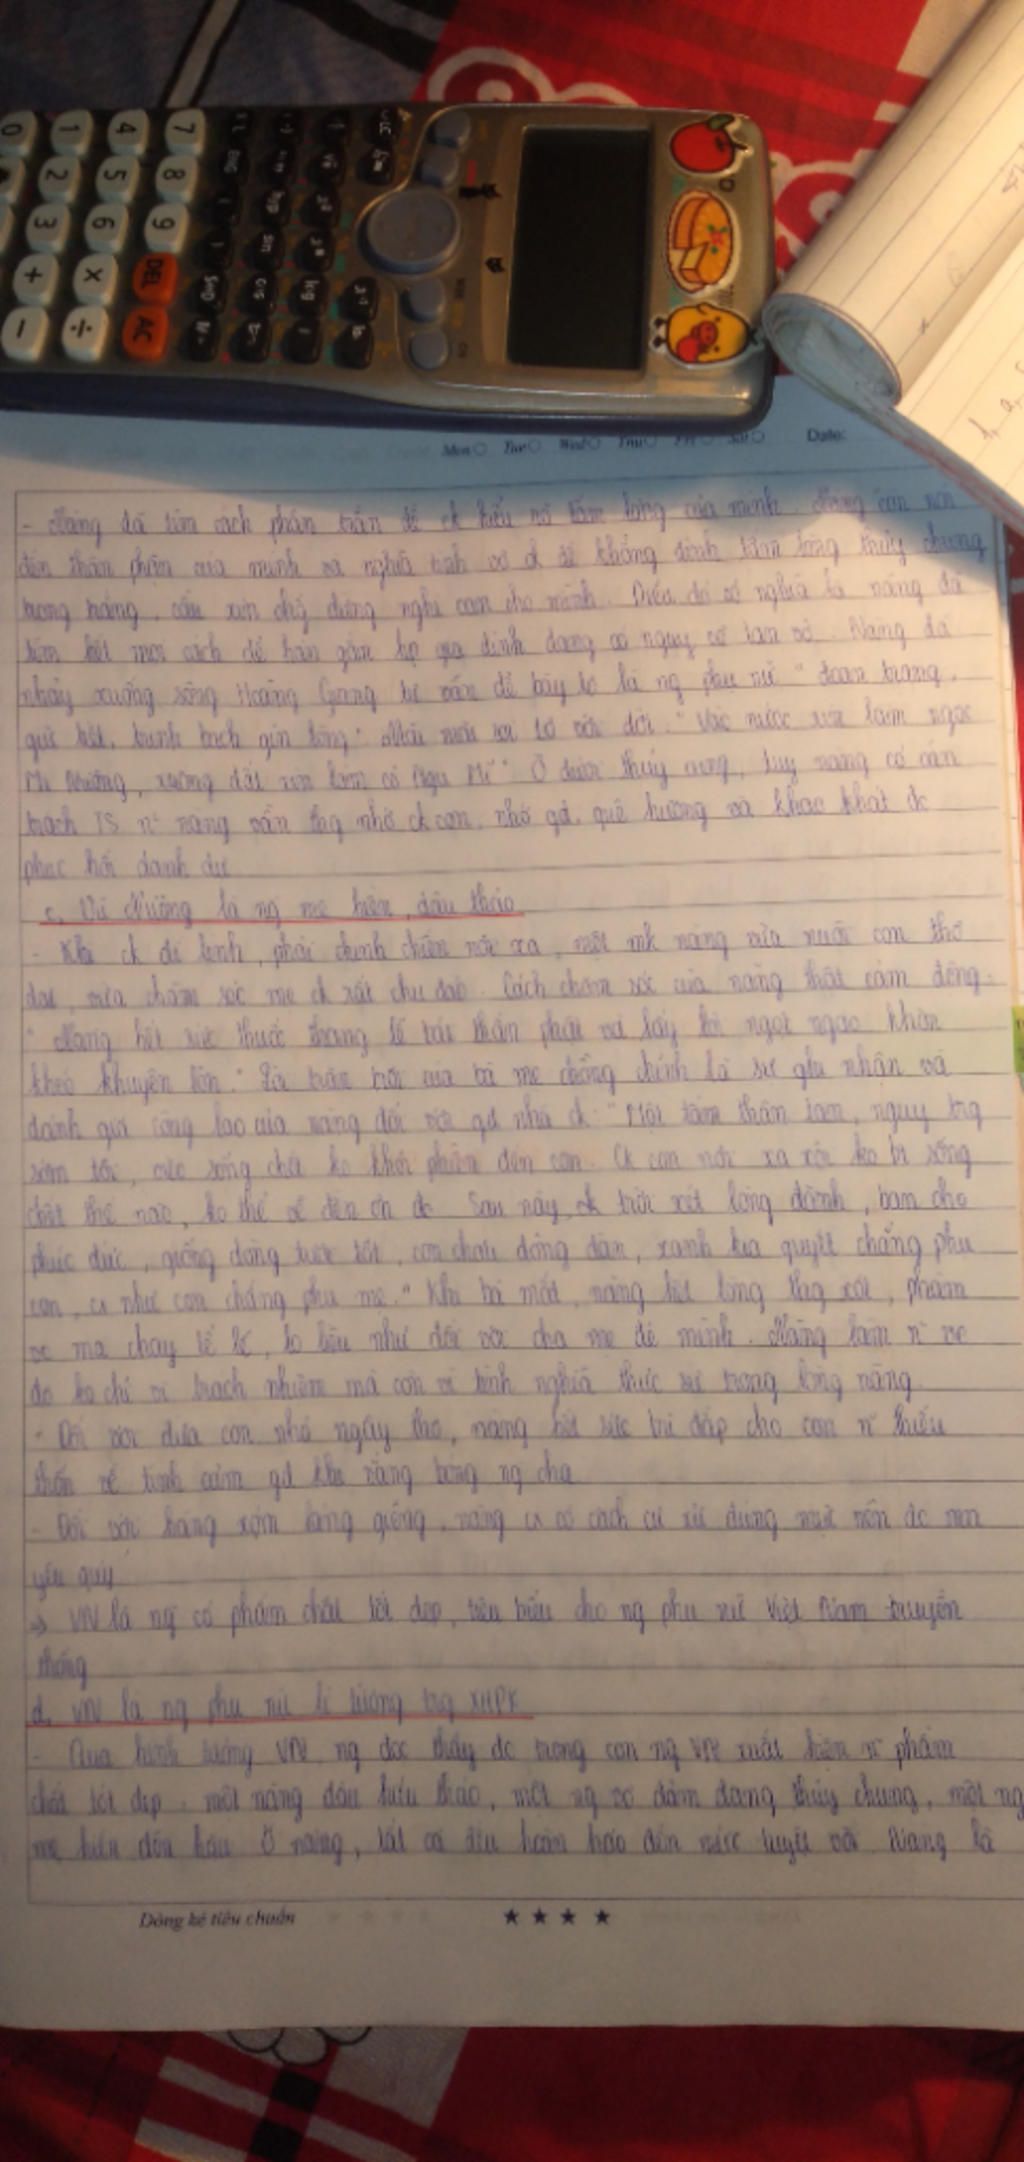 7 8 9 DEL AC
4 5 6 × ÷
1 2 3 + −
0
ENG
hyp
sin
log
Mon Tue Wed Thu Fri Sat Date:
- Nàng đã tìm cách phân trần để ck hiểu rõ tấm lòng của mình. Nàng còn nói
đến thân phận của mình và nghĩa tình vợ ck để khẳng định tấm lòng thủy chung
trong trắng, cầu xin chồng đừng nghi oan cho mình. Điều đó có nghĩa là nàng đã
tìm hết mọi cách để hàn gắn hp gia đình đang có nguy cơ tan vỡ. Nàng đã
nhảy xuống sông Hoàng Giang tự vẫn để bày tỏ là ng phụ nữ "đoan trang,
giữ tiết, trinh bạch gìn lòng". Mãi mãi soi tỏ với đời. "Vào nước xin làm ngọc
Mị Nương, xuống đất xin làm cỏ Ngu Mĩ". Ở dưới thủy cung, tuy nàng có oán
trách TS n~ nàng vẫn thg nhớ ck con, nhớ gđ, quê hương và khao khát đc
phục hồi danh dự
c, Vũ Nương là ng mẹ hiền, dâu thảo
- Khi ck đi lính, phải chinh chiến nơi xa, một mk nàng vừa nuôi con thơ
dại, vừa chăm sóc mẹ ck rất chu đáo. Cách chăm sóc của nàng thật cảm động:
" Nàng hết sức thuốc thang lễ bái thần phật và lấy lời ngọt ngào khôn
khéo khuyên lơn." Lời trăn trối của bà mẹ chồng chính là sự ghi nhận và
đánh giá công lao của nàng đối với gđ nhà ck: "Một tấm thân tàn, nguy trg
sớm tối, việc sống chết ko khỏi phiền đến con. Ck con nơi xa xôi ko bt sống
chết thế nào, ko thể về đền ơn đc. Sau này, ck trời xét lòng đành, ban cho
phúc đức, giống dòng tươi tốt, con cháu đông đàn, xanh kia quyết chẳng phụ
con, cx như con chẳng phụ mẹ." Khi bà mất, nàng hết lòng thg xót, phàm
vc ma chay tế lễ, lo liệu như đối với cha mẹ đẻ mình. Nàng làm n~ vc
đó ko chỉ vì trách nhiệm mà còn vì tình nghĩa thực sự trong lòng nàng.
- Đối với đứa con nhỏ ngây thơ, nàng hết sức bù đắp cho con n~ thiếu
thốn về tình cảm gđ khi vắng bóng ng cha
- Đối với hàng xóm láng giềng, nàng cx có cách cư xử đúng mực nên đc mn
yêu quý
→ VN là ng có phẩm chất tốt đẹp, tiêu biểu cho ng phụ nữ Việt Nam truyền
thống
d, VN là ng phụ nữ lí tưởng trg XHPK
- Qua hình tượng VN, ng đọc thấy đc trong con ng VN xuất hiện n~ phẩm
chất tốt đẹp: một nàng dâu hiếu thảo, một ng vợ đảm đang thủy chung, một ng
mẹ hiền đôn hậu. Ở nàng, tất cả đều hoàn hảo đến mức tuyệt vời. Nàng là
Dòng kẻ tiêu chuẩn